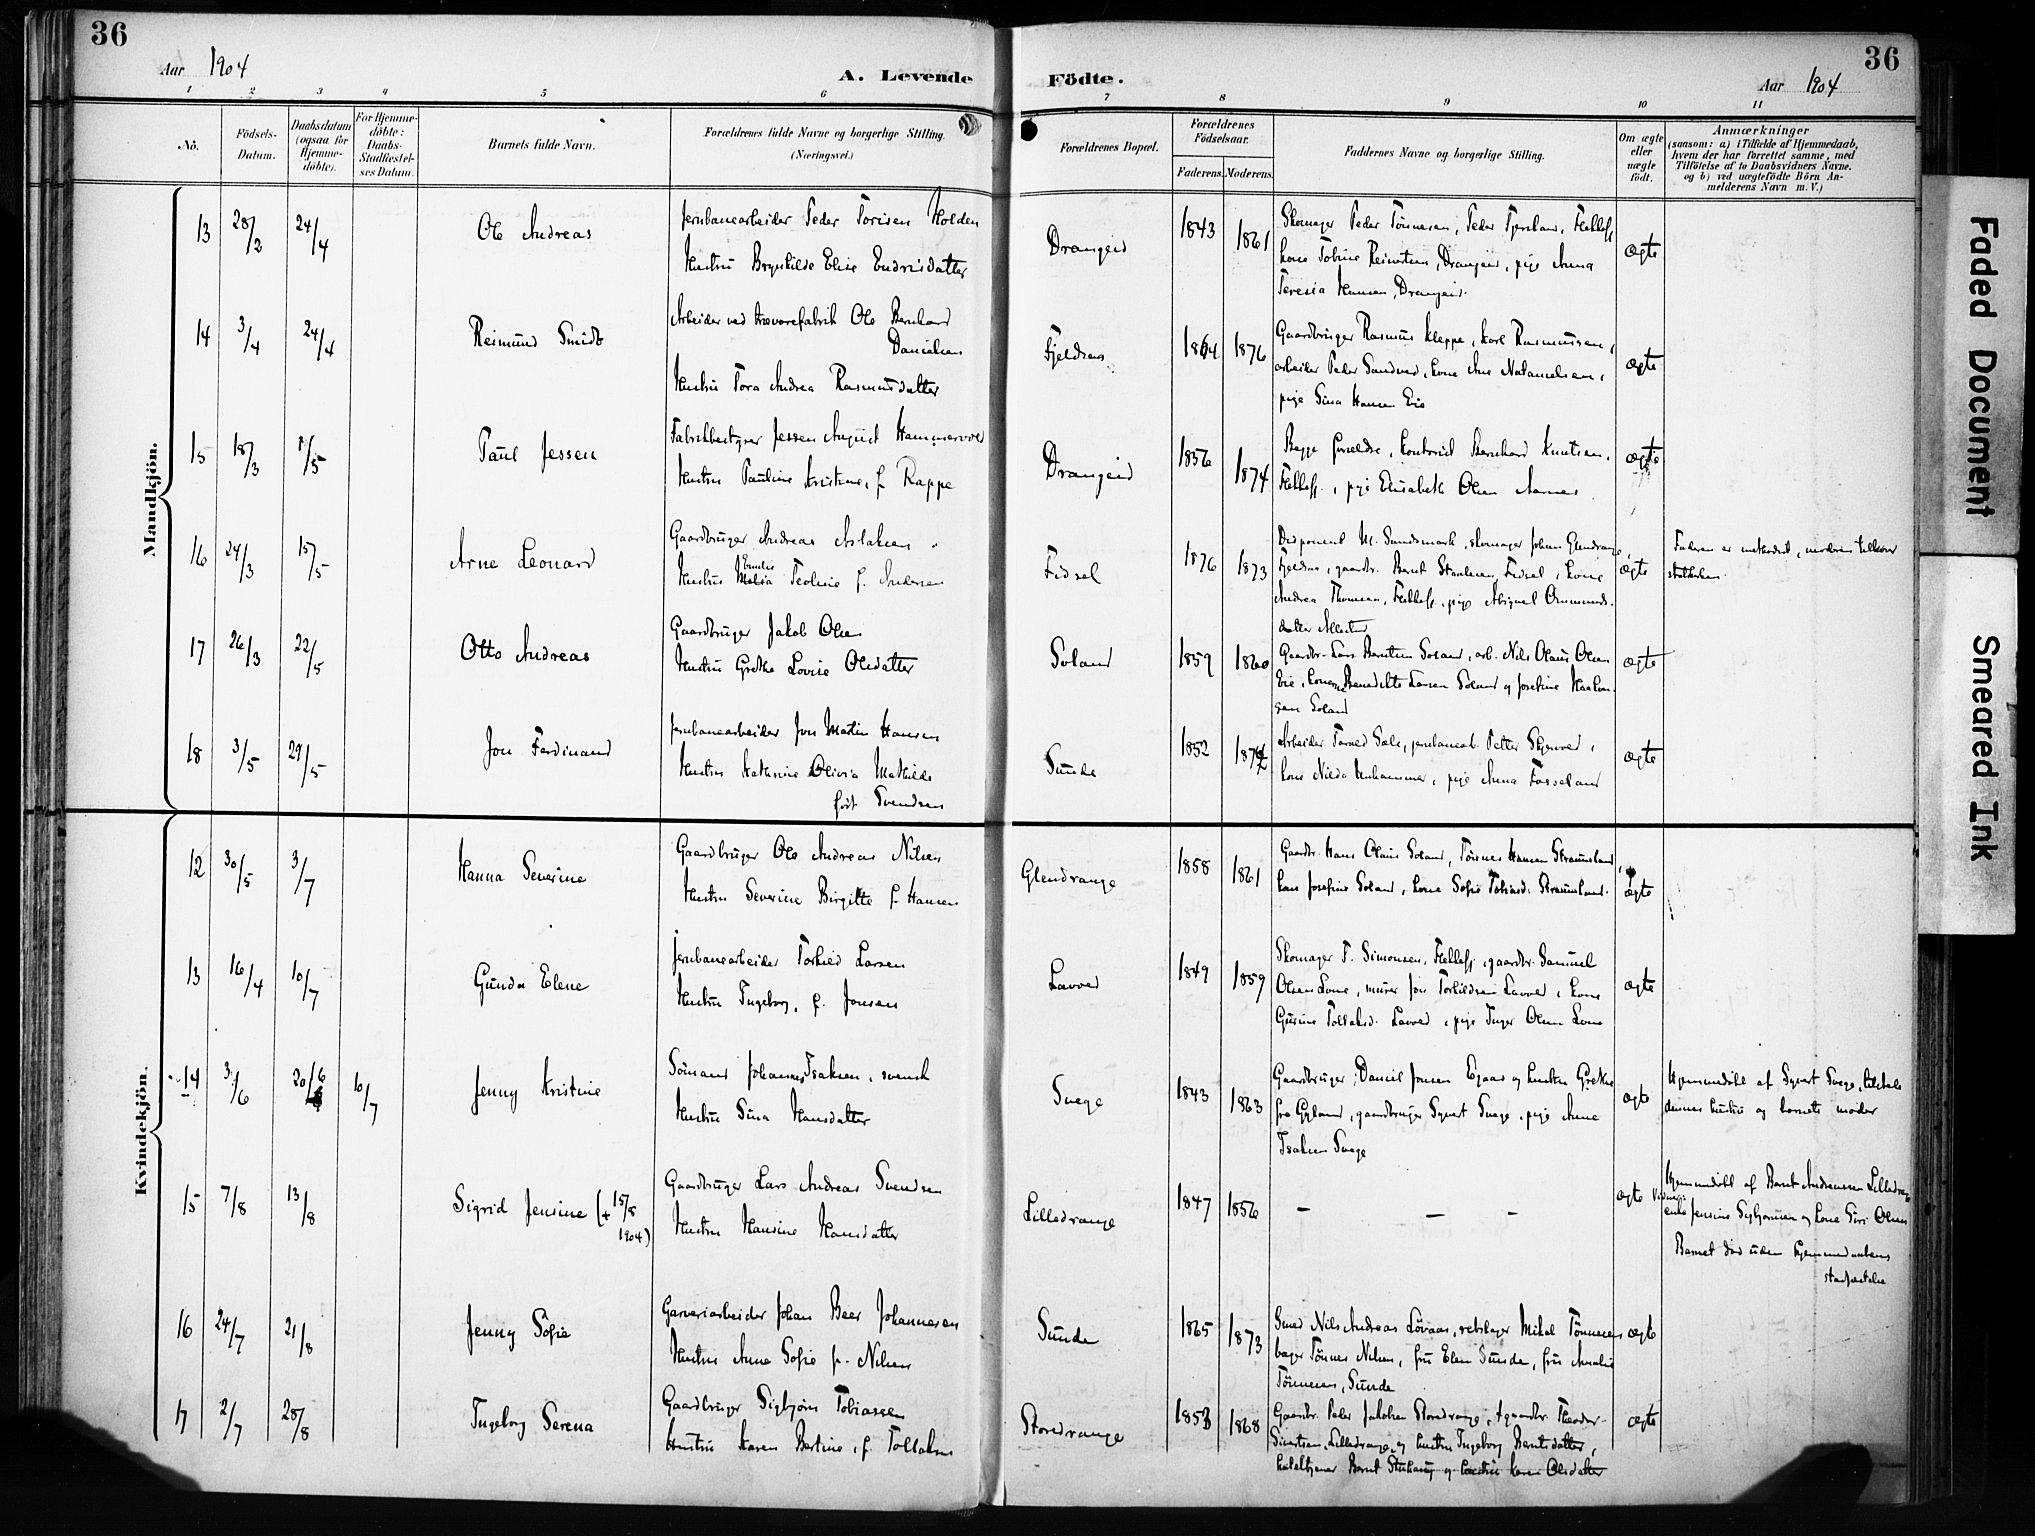 36
36
Aar 1904
A. Levende Födte.
Aar 1904
1 2 3 4 5 6 7 8 9 10 11
Nò.
Födsels-Datum.
Daabsdatum (ogsaa for Hjemme-döbte).
For Hjemme-döbte: Daabs-Stadfæstel-ses Datum.
Barnets fulde Navn.
Forældrenes fulde Navne og borgerlige Stilling. (Næringsvei.)
Forældrenes Bopæl.
Forældrenes Födselsaar.
Faderens. Moderens.
Faddernes Navne og borgerlige Stilling.
Om ægte eller uægte födt.
Anmærkninger
(saasom: a) i Tilfælde af Hjemmedaab,
hvem der har forrettet samme, med
Tilföielse af to Daabsvidners Navne.
og b) ved uægtefödte Börn An-
melderens Navn m. V.)
Mandkjön.
13 28/2 24/4 Ole Andreas
Jernbanearbeider Peder Torisen Holden
Hustru Brynhilde Elise Endresdatter
Drangeid 1843 1861
Skomager Peder Tönnesen, Peder
kone Tobine Reinertsen, Drangeid, pige Anna
Teresia Hansen, Drangeid.
ægte
14 3/4 24/4 Reimund Smidt
Arbeider ved trævarefabrik Ole Bernhard
Danielsen
Hustru Tora Andrea Rasmusdatter
Fjeldsaa 1864 1876
Gaardbruger Rasmus Kleppe, Karl Rasmussen,
arbeider Peder Sandved, kone Ane Natanielsen,
pige Sina Hansen Eie
ægte
15 18/3 1/5 Paul Jessen
Fabrikbestyrer Jessen August Hammervold
Hustru Pauline Kristine, f. Rappe
Drangeid 1856 1874
Begge forældre, kontorist Bernhard Knutsen,
pige Elisabeth Olsen Aarnes
ægte
16 24/3 15/5 Arne Leonard
Gaardbruger Andreas Aslaksen
Hustru Emilie Teoline f. Andersen
Fidsel 1876 1873
Disponent M. Sundsmark, skomager Johan Glendrange,
Fjeldsaa, gaardbr. Bernt Fidsel, kone
Andrea Thomsen, pige Abigael Ommunds-
datter
ægte
Faderen er methodist, moderen tilhører
statskirken.
17 26/3 22/5 Otto Andreas
Gaardbruger Jakob Olsen
Hustru Grethe Lovise Olsdatter
Soland 1859 1860
Gaardbr. Lars Berntsen Soland, arb. Nils Olaus Olsen
Eie, konerne Benedikte Larsen Soland og Josefine Haakon-
sen Soland
ægte
18 3/5 29/5 Jon Ferdinand
Jernbanearbeider Jon Martin Hansen
Hustru Kathrine Olivia Mathilde
født Svendsen
Sunde 1852
Arbeider jernbanearb. Petter
kone pige Anna
ægte
Kvindekjön.
12 30/5 3/7 Hanna Severine
Gaardbruger Ole Andreas Nilsen
Hustru Severine Birgitte f. Hansen
Glendrange 1858 1861
Gaardbr. Hans Olaus Soland, Tönnes Hansen Straumsland,
kone Josefine Soland, kone Sofie Tobiasd. Straumsland.
ægte
13 16/4 10/7 Gunda Elene
Jernbanearbeider Torkild Larsen
Hustru Ingeborg, f. Jonsen
Lavold 1849 1859
Skomager F. Simonsen, gaardbr. Samuel
Olsen Lone, murer Jon Torkildsen Lavold, kone
Gurine Tollaksd. Lavold, pige Inger Olsen Lone
ægte
14 3/6 20/6 10/7 Jenny Kristine
Sömand Johannes Isaksen, svensk
Hustru Sina Hansdatter
Svege 1843 1863
Gaardbruger Daniel Jonsen Egaas og hustru Grethe
fra Gyland, gaardbruger Syvert Svege, pige Anne
Isaksen Svege
ægte
Hjemmedöbt af Syvert Svege, tilstede
dennes hustru og barnets moder
15 7/8 13/8 Sigrid Jensine († 15/8
1904)
Gaardbruger Lars Andreas Svendsen
Hustru Hansine Hansdatter
Lilledrange 1847 1856
– – –
ægte
Hjemmedöbt af Bernt Andreassen Lilledrange
enke Jensine Sigbjörnsen og kone Siri Olsen
Barnet döde uden hjemmedaabens
stadfæstelse
16 24/7 21/8 Jenny Sofie
Garveriarbeider Johan Beer Johannesen
Hustru Anne Sofie f. Nilsen
Sunde 1865 1873
Smed Nils Andreas Lövaas, rebslager Mikal Tönnesen
bager Tönnes Nilsen, fru Elen Sunde, fru Amalie
Tönnesen, Sunde
ægte
17 2/7 28/8 Ingeborg Serena
Gaardbruger Sigbjörn Tobiassen
Hustru Karen Bertine, f. Tollaksen
Storedrange 1853 1868
Gaardbr. Peder Jakobsen Storedrange, gaardbr. Theodor
Sivertsen, Lilledrange, og hustru Ingeborg Berntsdatter,
Bernt og hustru Karen Olsdatter
ægte
Faded Document
Smeared Ink